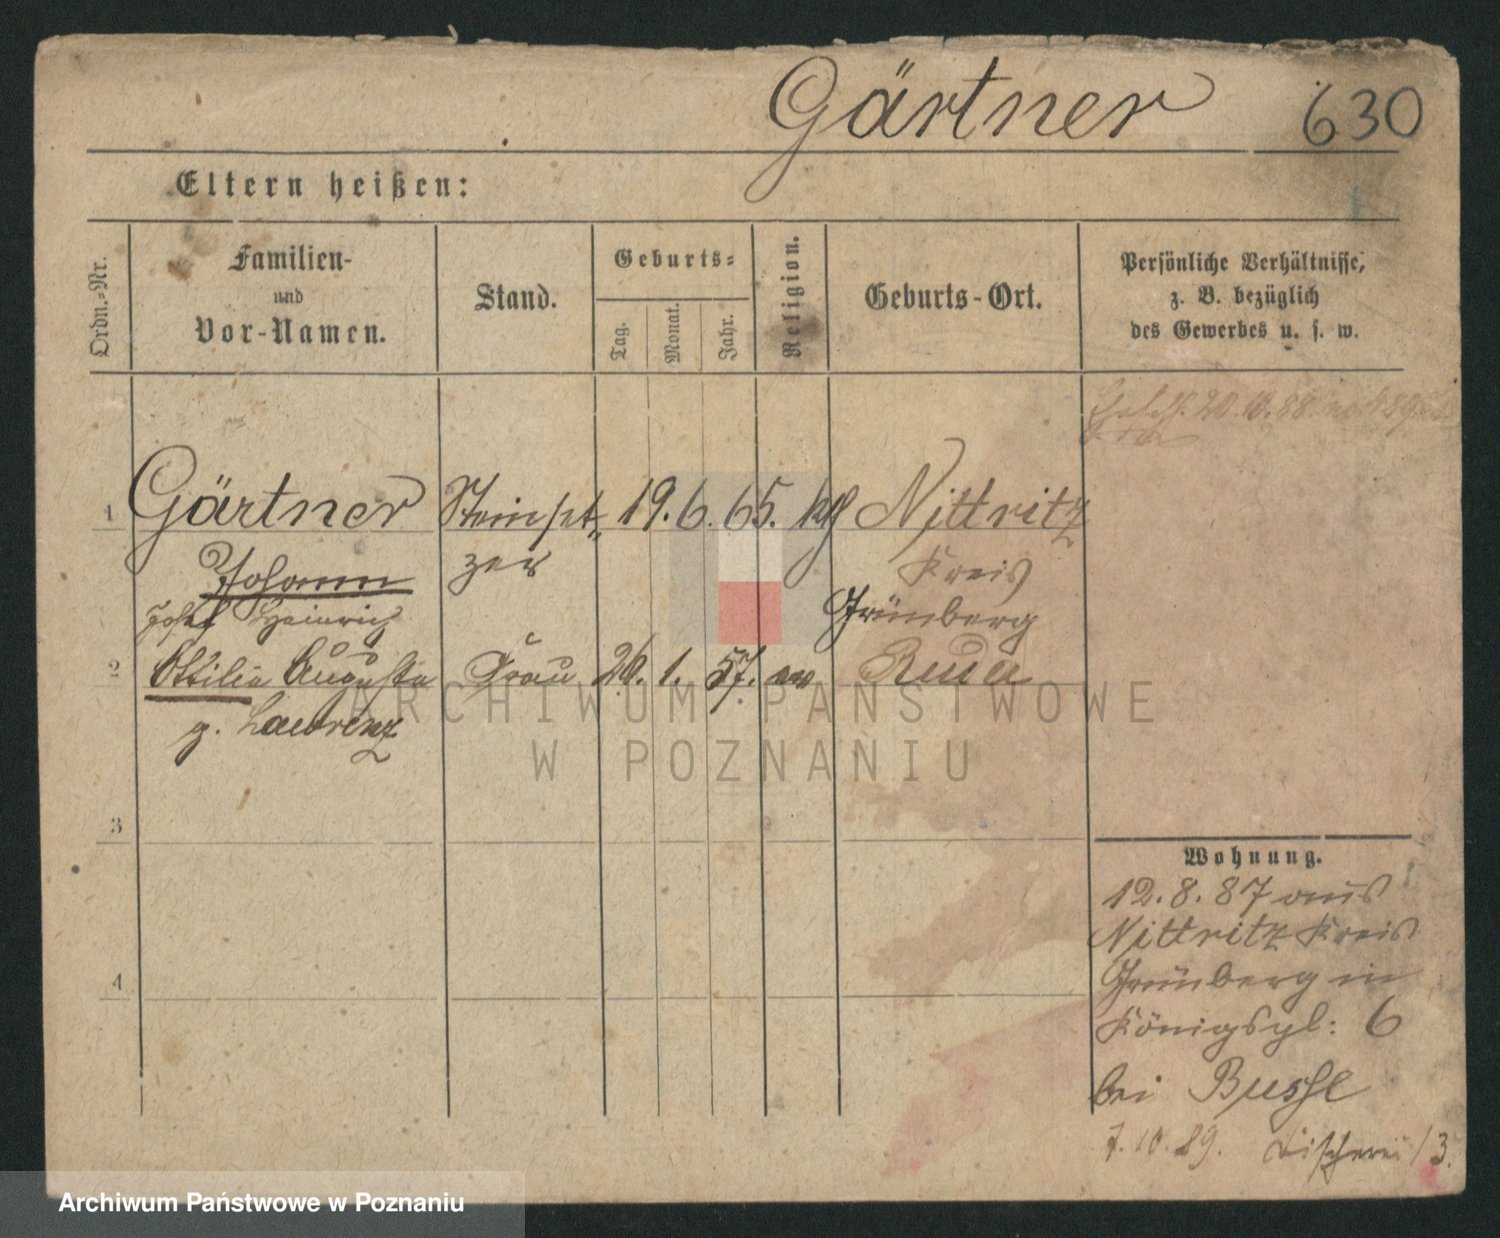 Gärtner 630
Eltern heißen:
Ordn.-Nr.
Familien-
und
Vor-Namen.
Stand.
Geburts-
Tag.
Monat.
Jahr.
Religion.
Geburts-Ort.
Persönliche Verhältnisse,
z. B. bezüglich
des Gewerbes u. s. w.
1 Gärtner Steinset- 19. 6. 65. kth Nittritz
Johann zer Kreis
Josef Heinrich Grünberg
2 Ottilie Augusta Frau 26. 1. 57. ev Ruda
g. Lawrenz
3
4
Wohnung.
12. 8. 87 aus
Nittritz Kreis
Grünberg in
Königspl: 6
bei Bussfe
7. 10. 89. Fischerei 13.
ARCHIWUM PAŃSTWOWE
W POZNANIU
Archiwum Państwowe w Poznaniu